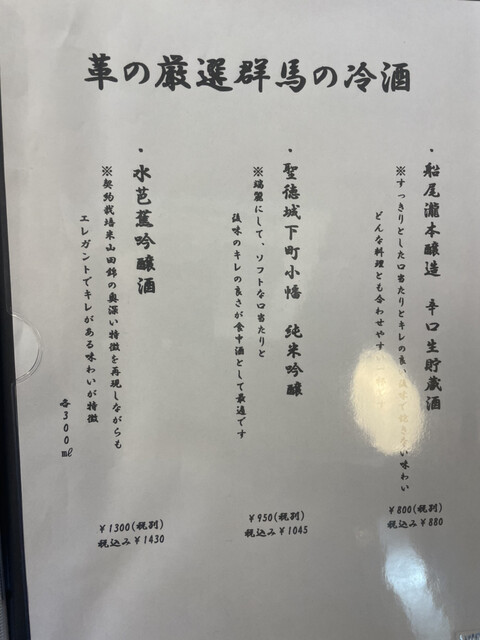 革の厳選群馬の冷酒
・船尾瀧本醸造 辛口生貯蔵酒
※すっきりとした口当たりとキレの良い後味で飽きない味わい
どんな料理とも合わせやす
¥800(税別)
税込み¥880
・聖徳城下町小幡 純米吟醸
※端麗にして、ソフトな口当たりと
後味のキレの良さが食中酒として最適です
¥950(税別)
税込み¥1045
・水芭蕉吟醸酒
※契約栽培米山田錦の奥深い特徴を再現しながらも
エレガントでキレがある味わいが特徴
各300㎖
¥1300(税別)
税込み¥1430